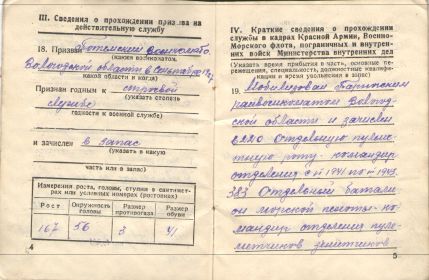 III. Сведения о прохождении призыва на
действительную службу
18. Призван
(каким военкоматом,
Вологодской области в
какой области и когда)
Признан годным к строевой
(указать степень
службе
годности к военной службе)
и зачислен в запас
(указать в какую
часть или в запас)
Измерения роста, головы, ступни в сантимет-
рах или условных номерах (ростовках)
Рост
Окружность
головы
Размер
противогаза
Размер
обуви
167
56
3
41
4
IV. Краткие сведения о прохождении
службы в кадрах Красной Армии, Военно-
Морского флота, пограничных и внутрен-
них войск Министерства внутренних дел
(Указать время прибытия в часть, основные пе-
ремещения, специальность, должностные квалифи-
кации и время увольнения в запас)
19. Мобилизован
райвоенкоматом Волог-
дской области и зачислен
в 220 Отдельную пулем-
етную роту - командир
отделения с 1941 по 1943.
383 Отдельный баталь-
он морской пехоты - ко-
мандир отделения пуле-
метчиков зенитчиков
5